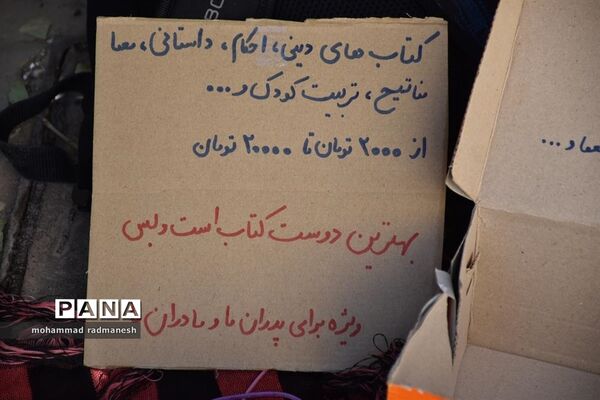 کتاب های دینی، احکام، داستانی، معا
مفاتیح، تربیت کودک و...
از ۲۰۰۰ تومان تا ۲۰۰۰۰ تومان
بهترین دوست کتاب است و بس
ویژه برای پدران ما و مادران
PANA
mohammad radmanesh